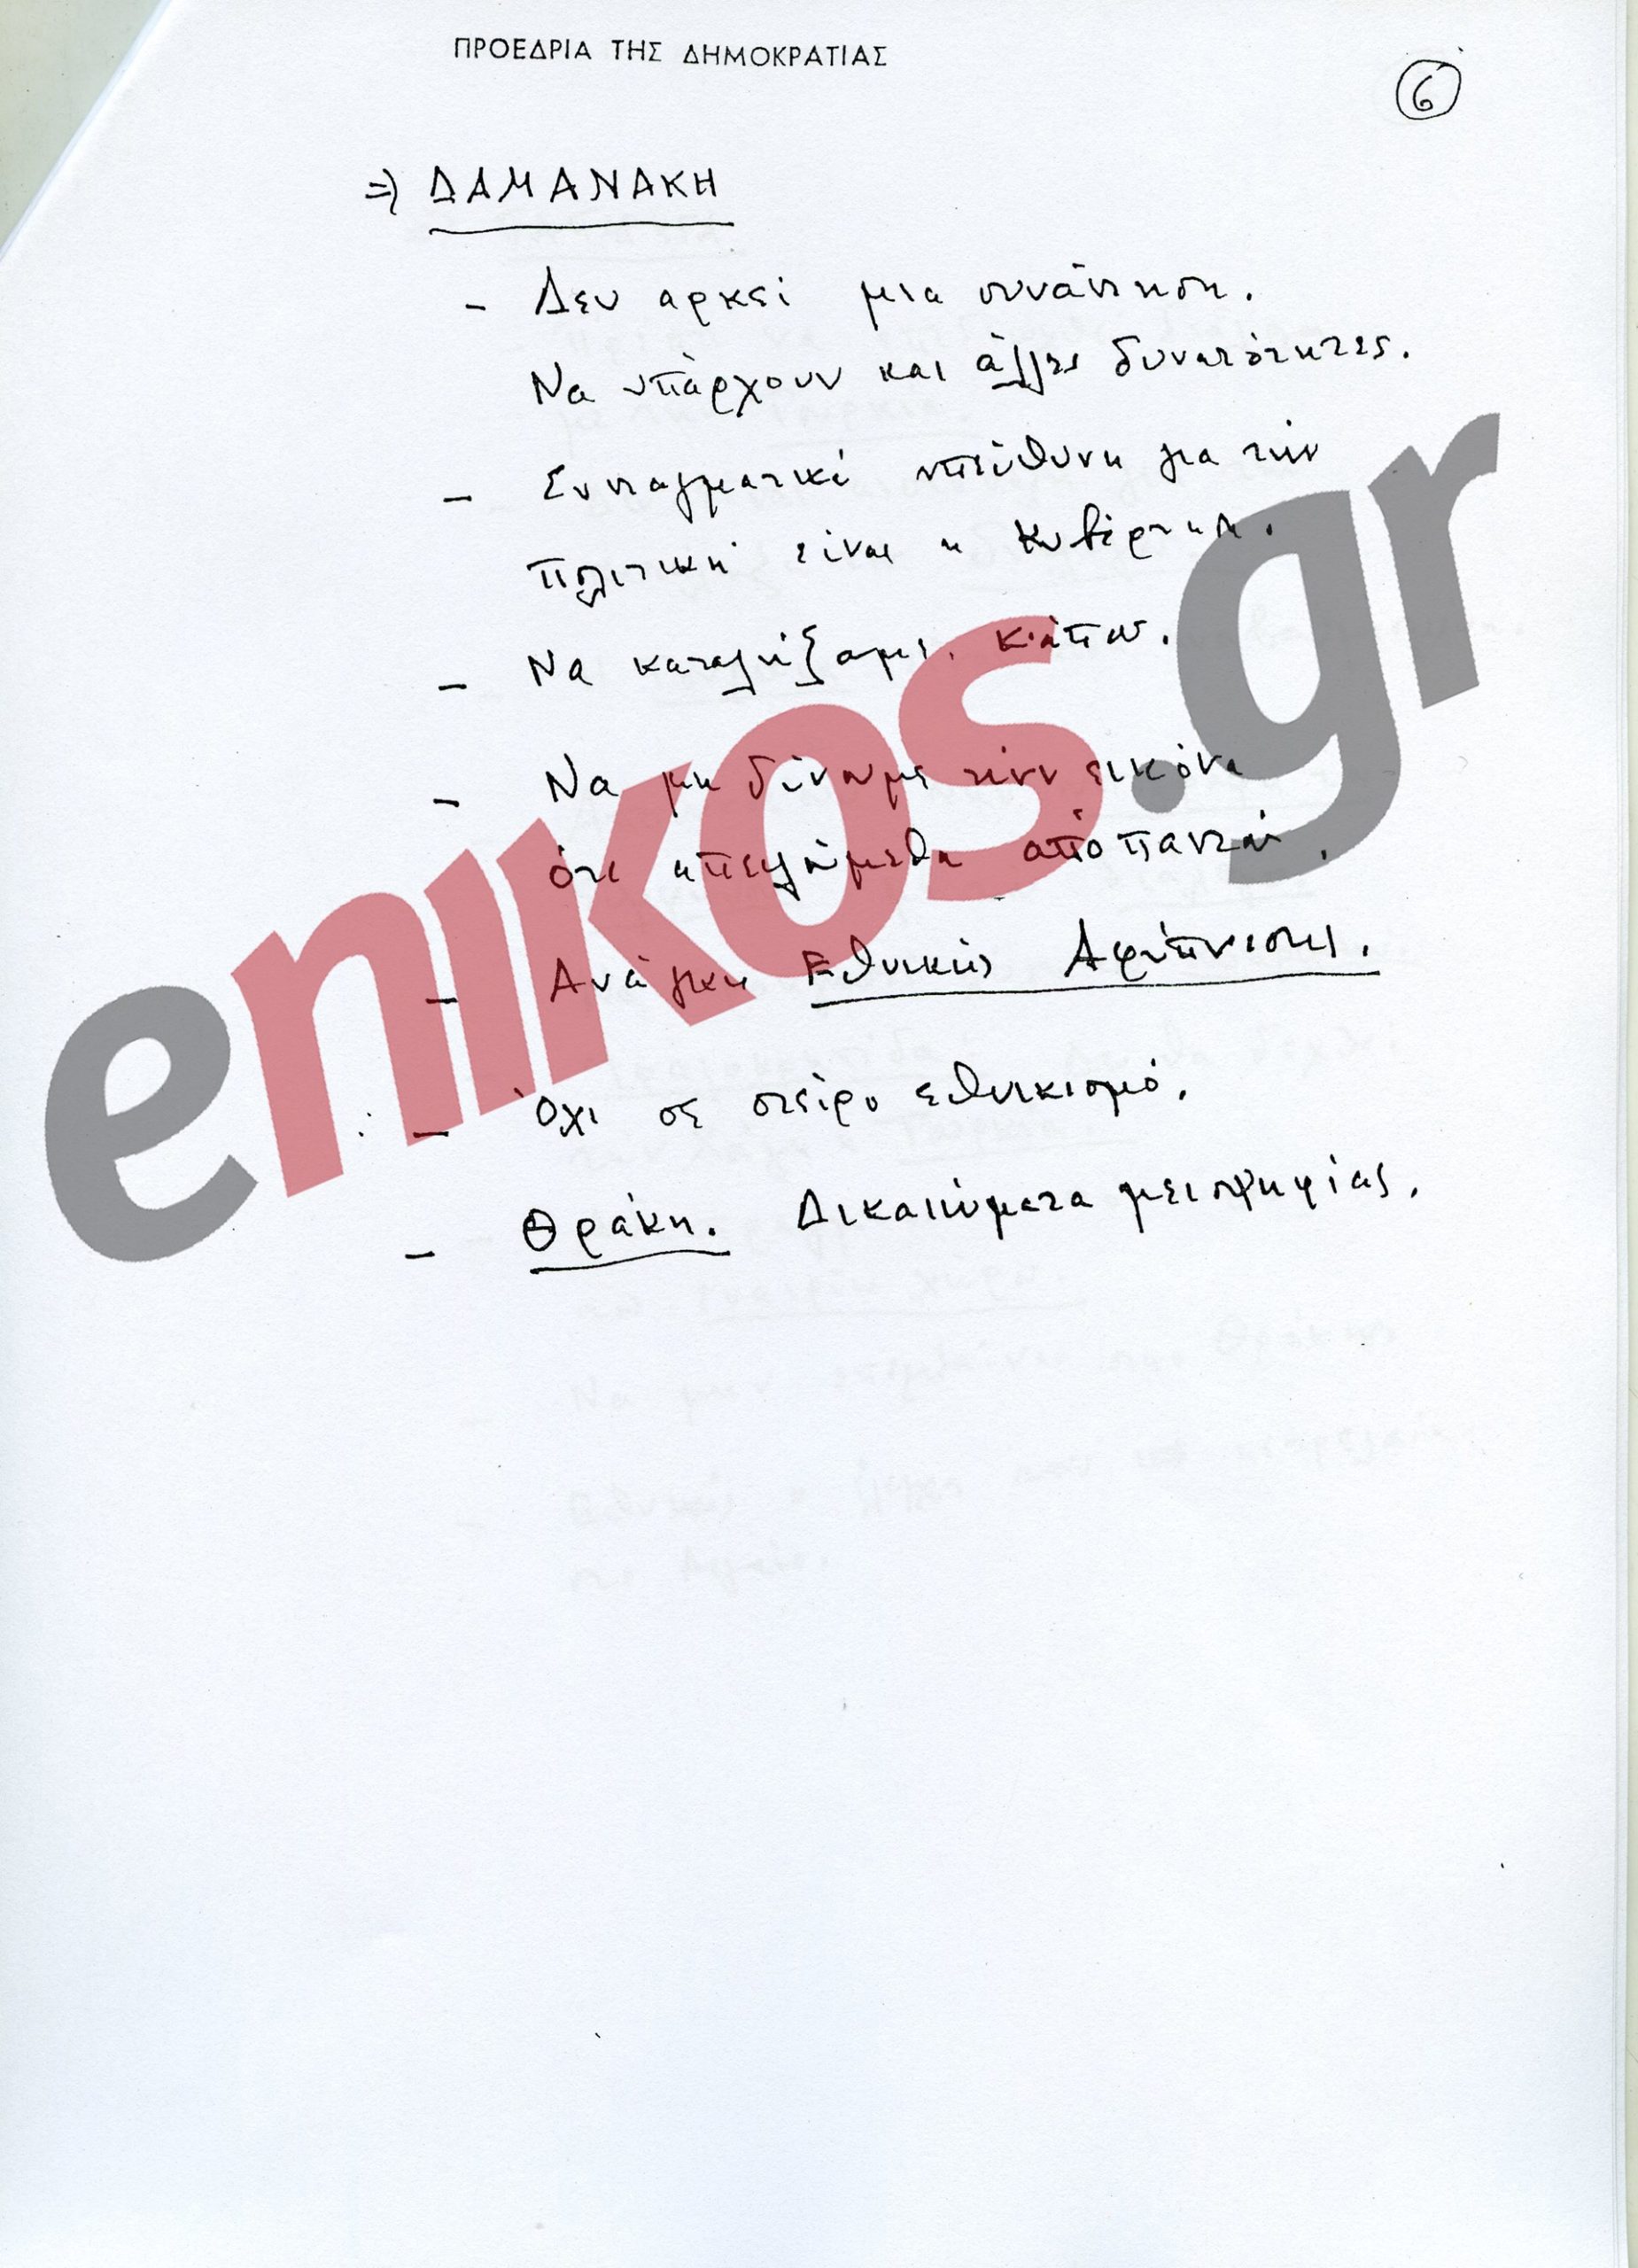 ΠΡΟΕΔΡΙΑ ΤΗΣ ΔΗΜΟΚΡΑΤΙΑΣ
6
=> ΔΑΜΑΝΑΚΗ
- Δεν αρκεί μια συνάντηση.
Να υπάρχουν και άλλες δυνατότητες.
- Συνταγματικά υπεύθυνη για την
πολιτική είναι η Κυβέρνηση.
- Να καταλήξουμε κάπου.
- Να μη δίνουμε την εικόνα
ότι απειλούμεθα από παντού.
- Ανάγκη Εθνικής Αφύπνισης.
- Όχι σε στείρο εθνικισμό.
- Θράκη. Δικαιώματα μειοψηφίας.
enikos.gr